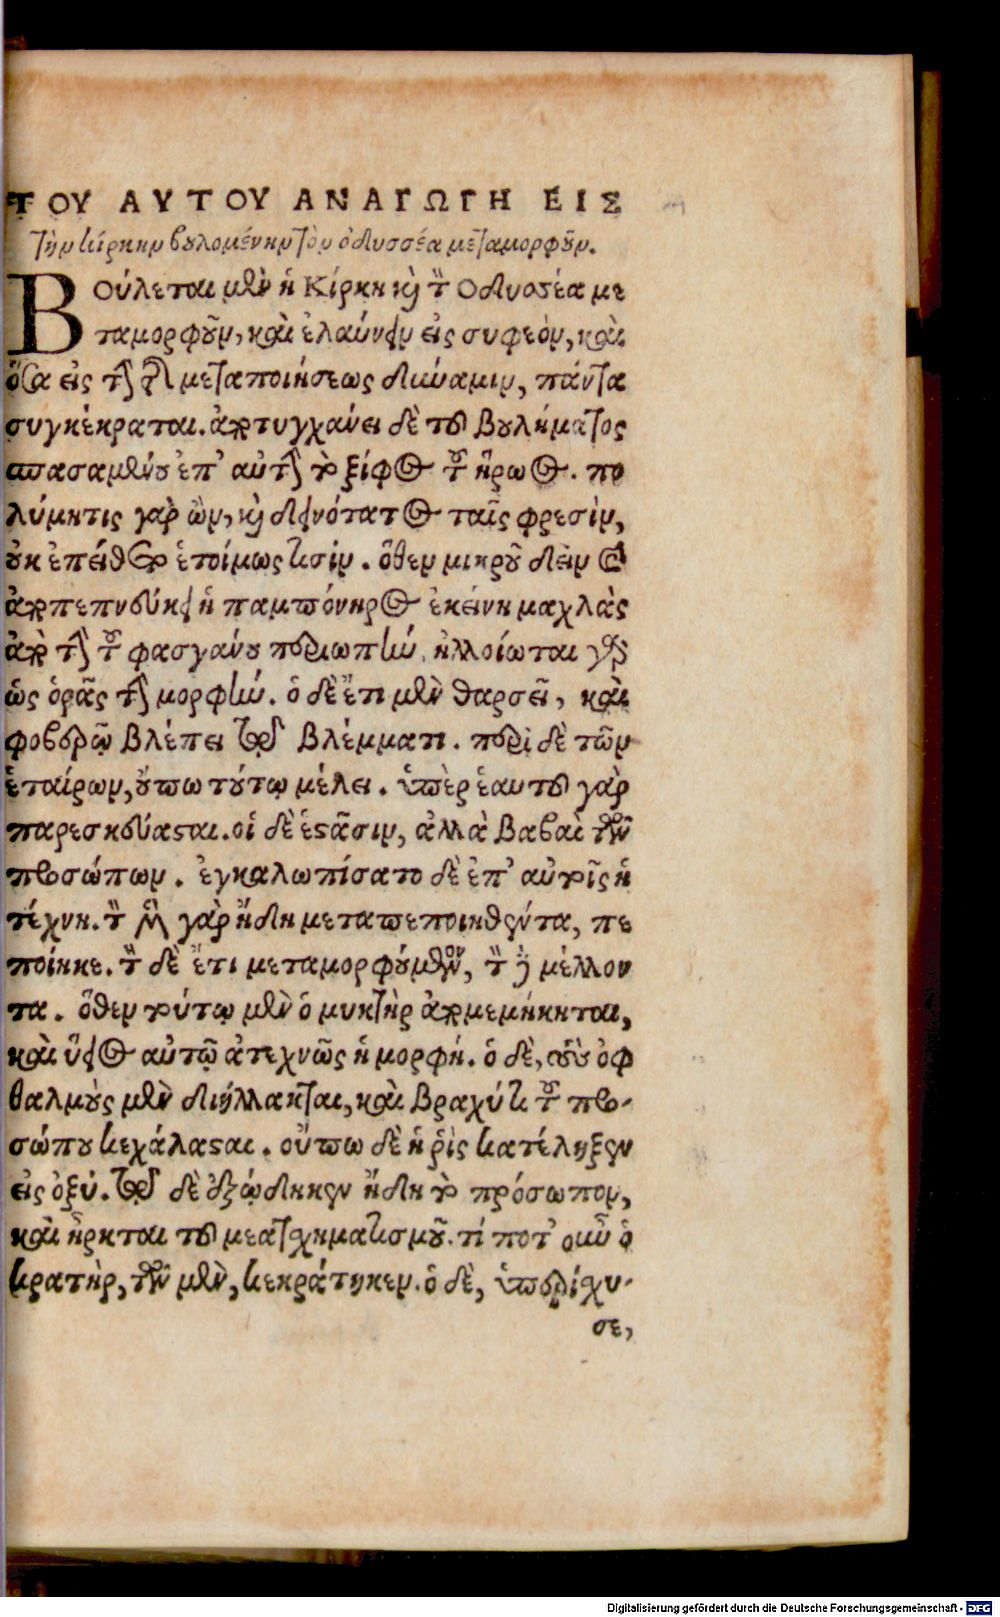 ΤΟΥ ΑΥΤΟΥ ΑΝΑΓΩΓΗ ΕΙΣ
τὴν κίρκην βουλομένην τὸν ὀδυσσέα μεταμορφοῦν.
ΒΟύλεται μὲν ἡ Κίρκη καὶ τὸν Οδυσσέα με
ταμορφοῦν, καὶ ἐλαύνειν εἰς συφεὸν, καὶ
ὅσα εἰς τὴν τῆς μεταποιήσεως δύναμιν, πάντα
συγκέκραται. ἀποτυγχάνει δὲ τοῦ βουλήματος
σπασαμένου ἐπ' αὐτὴν τὸ ξίφος τοῦ ἥρωος. πο
λύμητις γὰρ ὢν, καὶ δεινότατος ταῖς φρεσὶν,
οὐκ ἐπείθετο ἑτοίμως τισίν. ὅθεν μικροῦ δεῖν καὶ
ἀποπεπνεύκει ἡ παμπόνηρος ἐκείνη μαχλὰς
ἀπὸ τὴν τοῦ φασγάνου περιωπὴν. ἠλλοίωται γοῦν
ὡς ὁρᾷς τὴν μορφήν. ὁ δὲ ἔτι μὲν θαρσεῖ, καὶ
φοβερῷ βλέπει τῷ βλέμματι. περὶ δὲ τῶν
ἑταίρων, οὔπω τούτῳ μέλει. ὑπὲρ ἑαυτοῦ γὰρ
παρεσκεύασται. οἱ δὲ ἑστᾶσιν, ἀλλὰ βαβαὶ τῶν
προσώπων. ἐγκαλωπίσατο δὲ ἐπ' αὐτοῖς ἡ
τέχνη. τὸν μὲν γὰρ ἤδη μεταπεποιηθέντα, πε
ποίηκε. τὸν δὲ ἔτι μεταμορφούμενον, τὸν δὲ μέλλον
τα. ὅθεν τούτῳ μὲν ὁ μυκτὴρ ἀπομεμήκηται,
καὶ ὕειος αὐτῷ ἀτεχνῶς ἡ μορφή. ὁ δὲ, τοὺς ὀφ
θαλμοὺς μὲν διήλλακται, καὶ βραχύ τι τοῦ προ-
σώπου κεχάλασται. οὔπω δὲ ἡ ῥὶς κατέληξεν
εἰς ὀξύ. τῷ δὲ ἐξῴδηκεν ἤδη τὸ πρόσωπον,
καὶ ἦρκται τοῦ μετασχηματισμοῦ. τί ποτ' οὖν ὁ
κρατὴρ, τῶν μὲν, κεκράτηκεν. ὁ δὲ, ὑπερίσχυ-
σε,
Digitalisierung gefördert durch die Deutsche Forschungsgemeinschaft - DFG